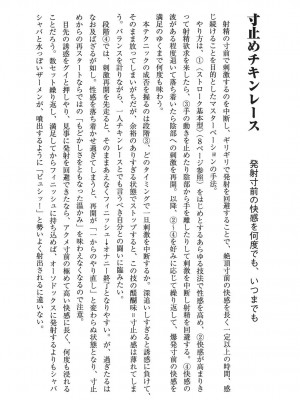 寸止めチキンレース
発射寸前の快感を何度でも、いつまでも
射精の寸前で刺激するのを中断し、ギリギリで発射を回避することで、絶頂寸前の快感を長く(一定以上の時間、感
じ続けることを目的としたマスターベーションの手法。
やり方は、①〈ストローク基本型〉(8ページ参照)をはじめとするあらゆる技法で性感を高め、②快感が高まりき
って射精欲求を来したら、③手の動きを止めたり陰部から手を離したりして刺激を中断し射精を回避する。④快感の
波がある程度退いて落ち着いたら陰部への刺激を再開。以降、②〜④を好みに応じて繰り返して、爆発寸前の快感を
満足のゆくまで何度も味わう。
本テクニックの成否を握るのは段階③、どのタイミングで一旦刺激を中断するか。深追いしすぎると誘惑に負けて、
そのまま放ってしまいがちだが、余裕のありすぎる状態でストップすると、この技の醍醐味=寸止め感は薄れてしま
う。バランスを計りながら、「一人チキンレース」とでも言うべき自分との闘いに臨みたい。
段階④では、刺激再開を先走ると、そのままあえなくフィニッシュ→オナニー終了となりやすい。が、過ぎたるは
なお及ばざるが如し。性感を落ち着かせ過ぎてしまうと、再開が「一からのやり直し」と変わらぬ状態となり、寸止
めからの再スタートならではの「もどかしさをともなった温かみ」を味わえなくなるので注意。
目先の誘惑をグイと押しやり、見事に発射を回避できたなら、アクメ寸前の極めて高い快感に長く、何度も浸れる
ことだろう。数セット繰り返し、満足してからフィニッシュに持ち込めば、オーソドックスに発射するよりもシャバ
シャバと水っぽいザーメンが、噴出するように「ビュンッー」と勢いよく射出されるに違いない。